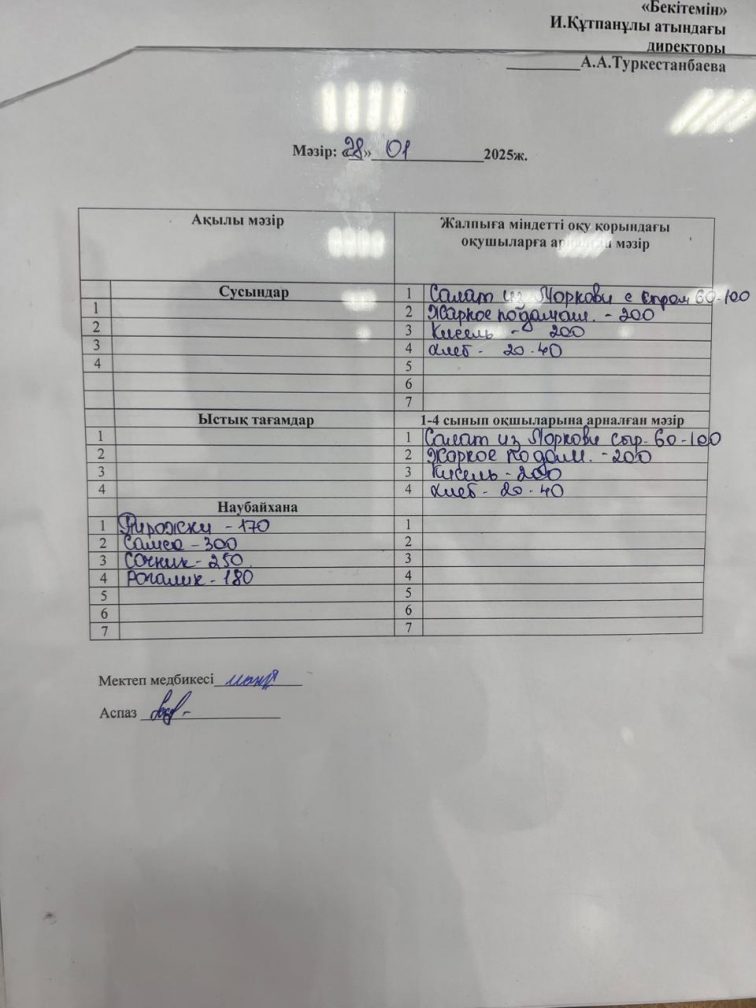 «Бекітемін»
И.Құтпанұлы атындағы
директоры
__________А.А.Туркестанбаева
Мәзір: «28» 01 2025ж.
Ақылы мәзір
Жалпыға міндетті оқу қорындағы
оқушыларға мәзір
Сусындар
1 Салат из Моркови с сыром 60-100
1
2 Жаркое по домаш. - 200
2
3 Кисель - 200
3
4 Хлеб - 20-40
4
5
6
7
Ыстық тағамдар
1-4 сынып оқшыларына арналған мәзір
1
1 Салат из Моркови сыр- 60-100
2
2 Жаркое по дам. - 200
3
3 Кисель - 200
4
4 Хлеб - 20-40
Наубайхана
1 Пирожки - 170
1
2 Самса - 300
2
3 Сочник - 250
3
4 Рогалик - 180
4
5
5
6
6
7
7
Мектеп медбикесі
Аспаз